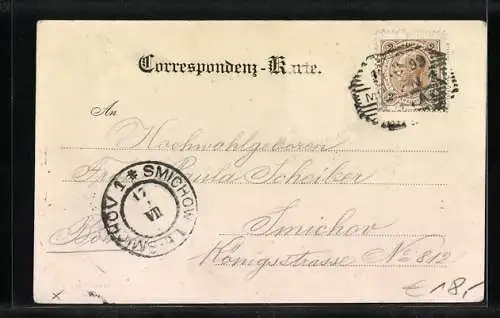 Correspondenz-Karte.
An
Hochwohlgeboren
Paula Scheiber
SMICHOW 1. SMICHOV 1
17
VII
Smichov
Königsstrasse No 812
€ 18,-